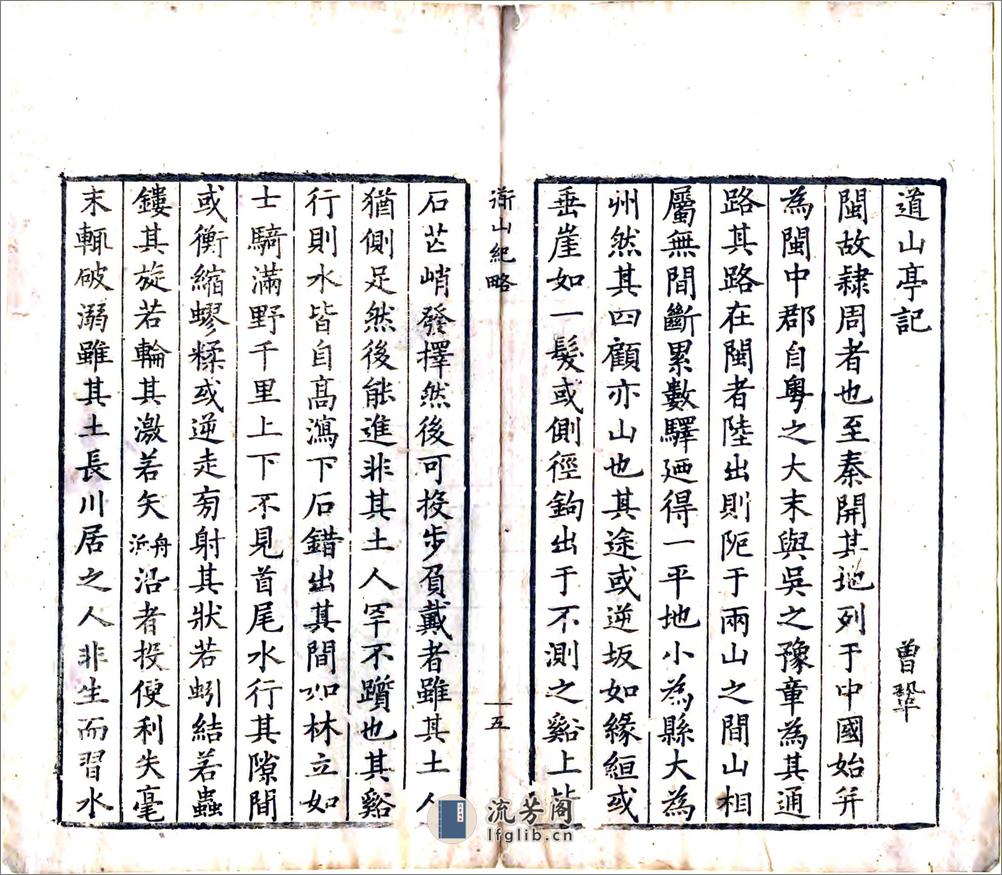 道山亭記　曾鞏
閩故隸周者也至秦開其地列于中國始并
為閩中郡自粤之大末與吳之豫章為其通
路其路在閩者陸出則阨于兩山之間山相
屬無間斷累數驛廼得一平地小為縣大為
州然其四顧亦山也其途或逆坂如緣絙或
垂崖如一髮或側徑鉤出于不測之谿上
衜山紀略
五
石芒峭發擇然後可投步負戴者雖其土人
猶側足然後能進非其土人罕不躓也其谿
行則水皆自高瀉下石錯出其間如林立如
士騎滿野千里上下不見首尾水行其隙間
或衡縮蟉糅或逆走旁射其狀若蚓結若蟲
鏤其旋若輪其激若矢舟泝沿者投便利失毫
末輒破溺雖其土長川居之人非生而習水
流芳阁
lfglib.cn